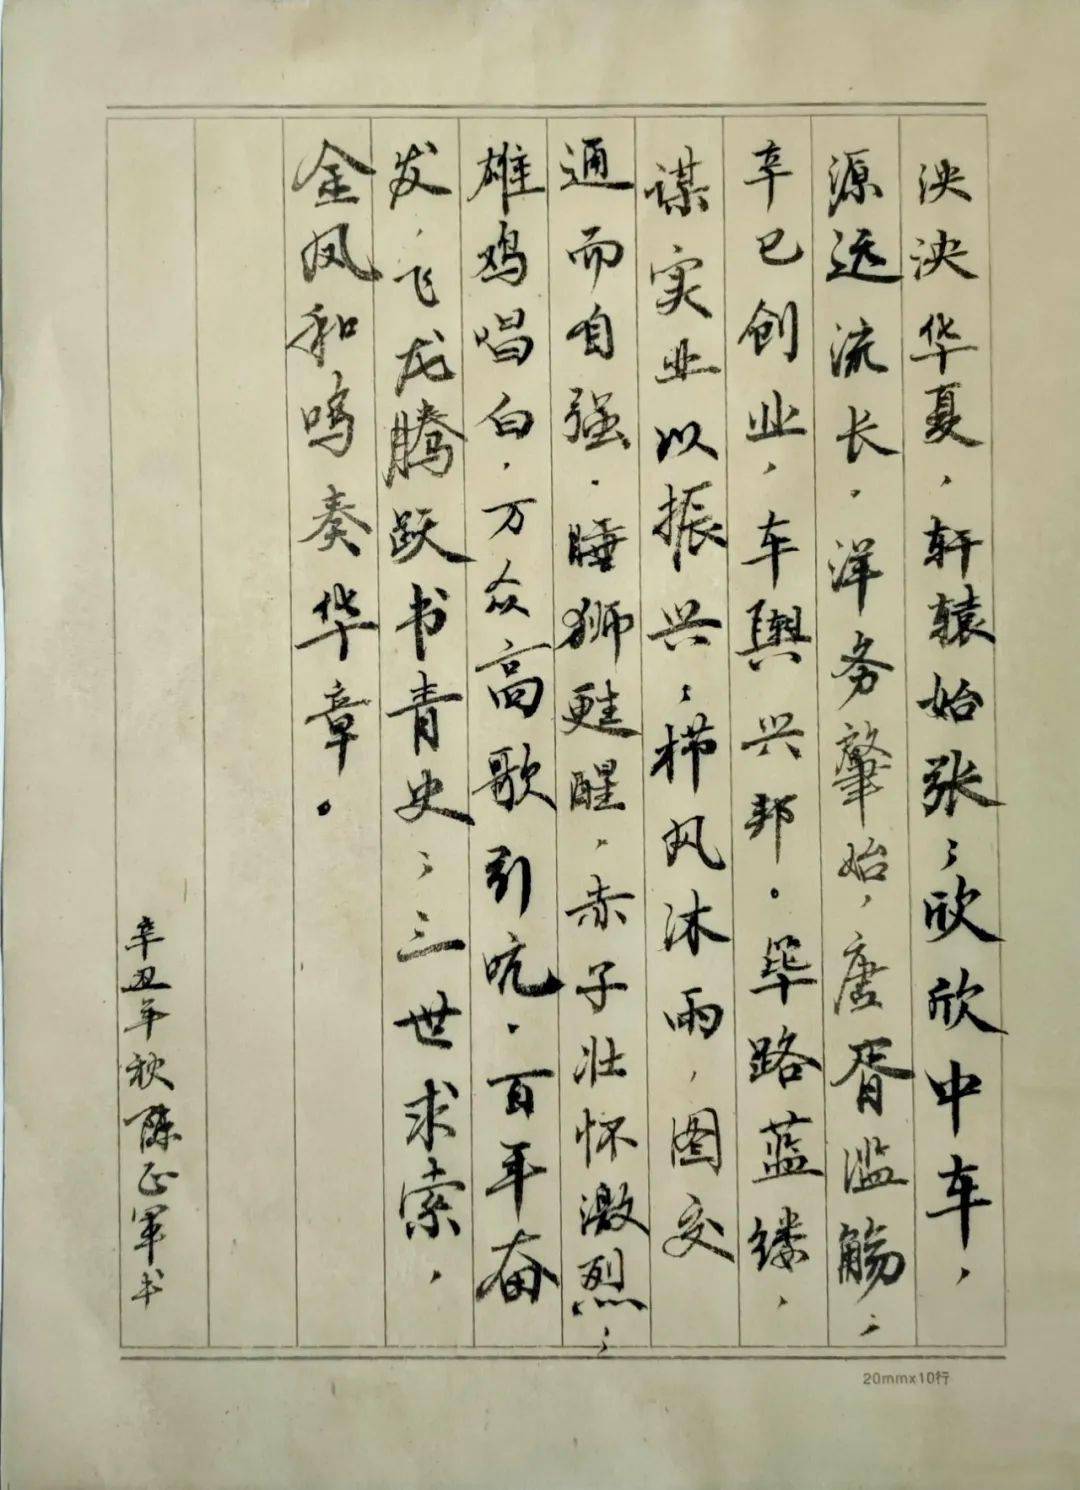 泱泱华夏，轩辕始张；欣欣中车，
源远流长。洋务肇始，唐胥滥觞；
辛巳创业，车舆兴邦。筚路蓝缕，
谋实业以振兴；栉风沐雨，图交
通而自强。睡狮甦醒，赤子壮怀激烈；
雄鸡唱白，万众高歌引吭。百年奋
发，飞龙腾跃书青史；三世求索，
金凤和鸣奏华章。
辛丑年秋陈正军书
20mmx10行